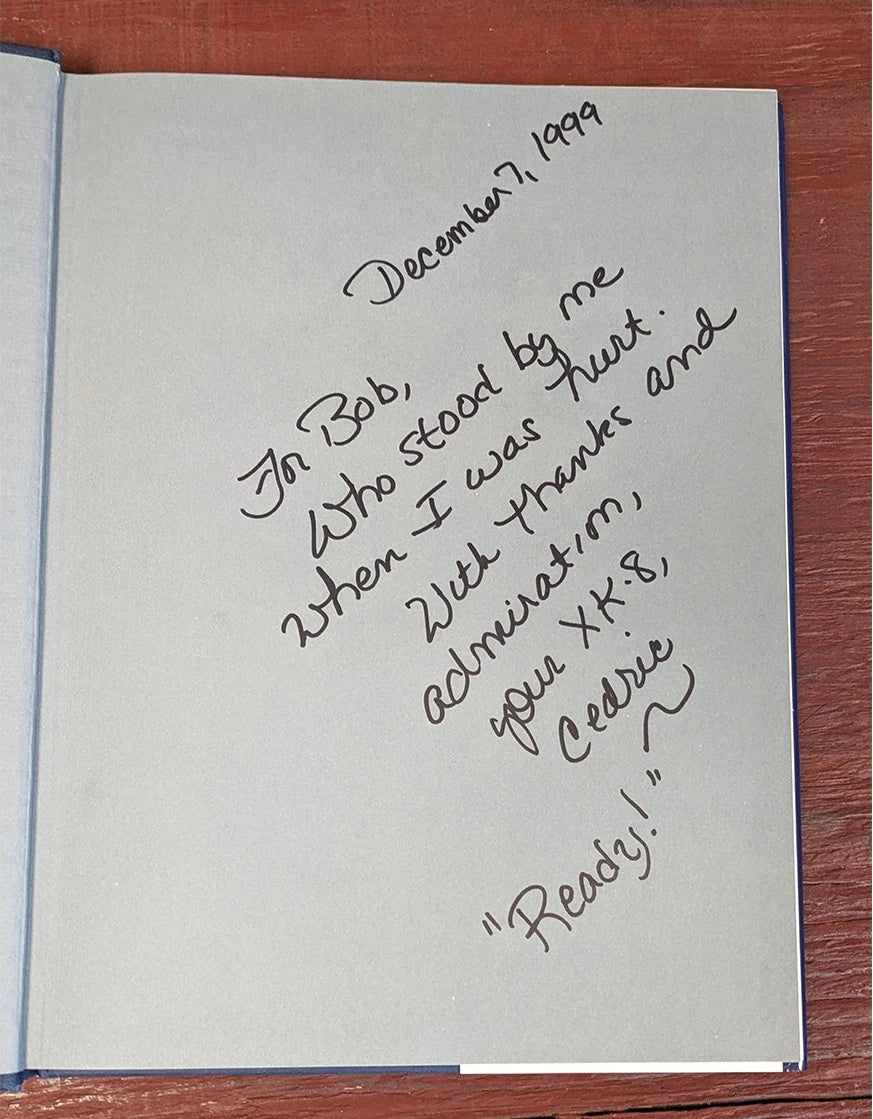 December 7, 1999
For Bob,
Who stood by me
when I was hurt.
With thanks and
admiration,
your XK-8,
Cedric
"Ready!"